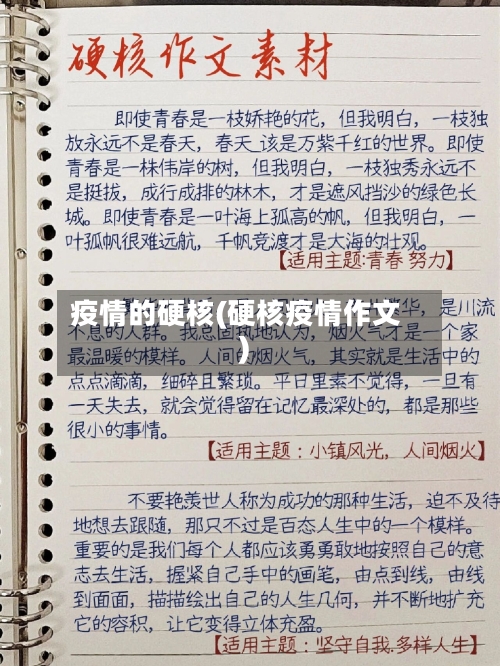 硬核作文素材
即使青春是一枝娇艳的花，但我明白，一枝独
放永远不是春天，春天 该是万紫千红的世界。即使
青春是一株伟岸的树，但我明白，一枝独秀永远不
是挺拔，成行成排的林木，才是遮风挡沙的绿色长
城。即使青春是一叶海上孤高的帆，但我明白，一
叶孤帆很难远航，千帆竞渡才是大海的壮观。
【适用主题:青春 努力】
华，是川流
疫情的硬核(硬核疫情作文
)
不息的人群。我总固执地认为，烟火气才是一个家
最温暖的模样。人间烟火气，其实就是生活中的
点点滴滴，细碎且繁琐。平日里素不觉得，一旦有
一天失去，就会觉得留在记忆最深处的，都是那些
很小的事情。
【适用主题：小镇风光，人间烟火】
不要艳羡世人称为成功的那种生活，迫不及待
地想去跟随，那只不过是百态人生中的一个模样。
重要的是我们每个人都应该勇勇敢地按照自己的意
志去生活，握紧自己手中的画笔，由点到线，由线
到面面，描描绘出自己的人生几何，并不断地扩充
它的容积，让它变得立体充盈。
【适用主题：坚守自我.多样人生】